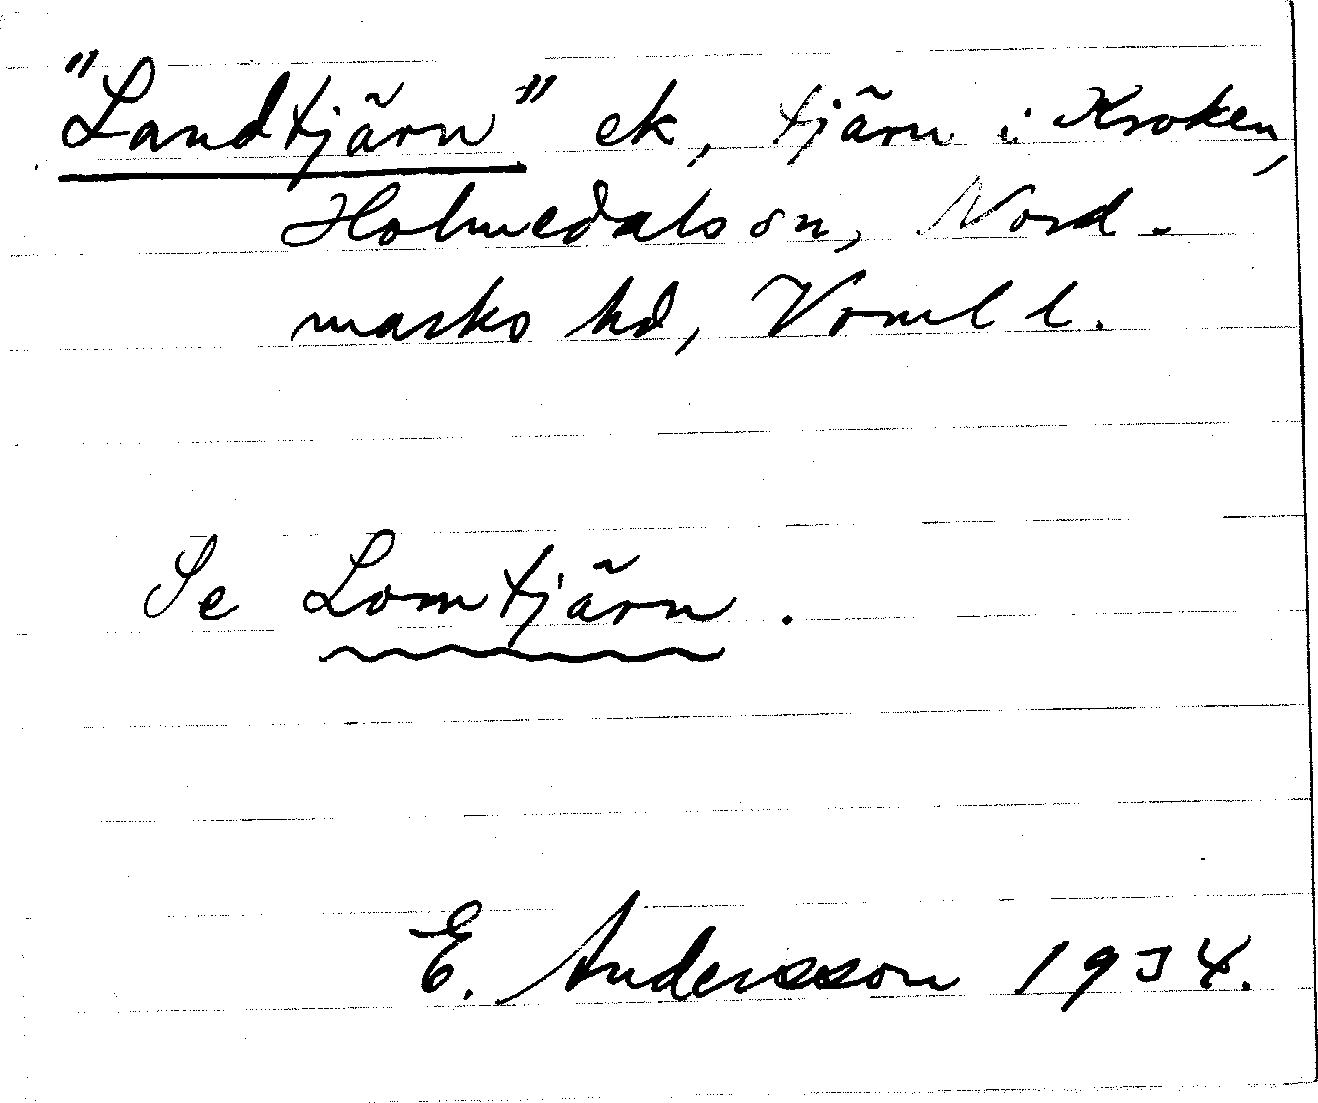 "Landtjärn" ek, tjärn i Kroken,
Holmedals sn, Nord-
marks hd, Vrml l.
Se Lomtjärn.
E. Andersson 1934.